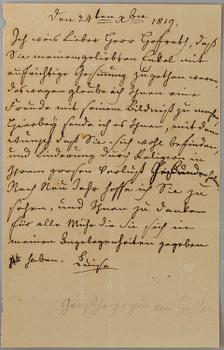 den 24ten Xbre 1819.
Ich weis Lieber Herr Hofrath, daß
Sie meinem geliebten Enkel mit
aufrichtige Gesinung zugethan waren
deswegen glaube ich Ihnen eine
Freude mit seinem Bildniß zu machen
Hierbey sende ich es Ihnen, mit dem
Wunsch daß Sie sich wohl befinden,
und Linderung durch Religion in
Ihrem großen Verlust gefunden haben
Nach Neu Jahr hoffe ich Sie zu
sehen, und Ihnen zu danken
für alle Mühe die Sie sich in
meinen Angelegenheiten gegeben
haben. Luise
Großherzogin von Hessen